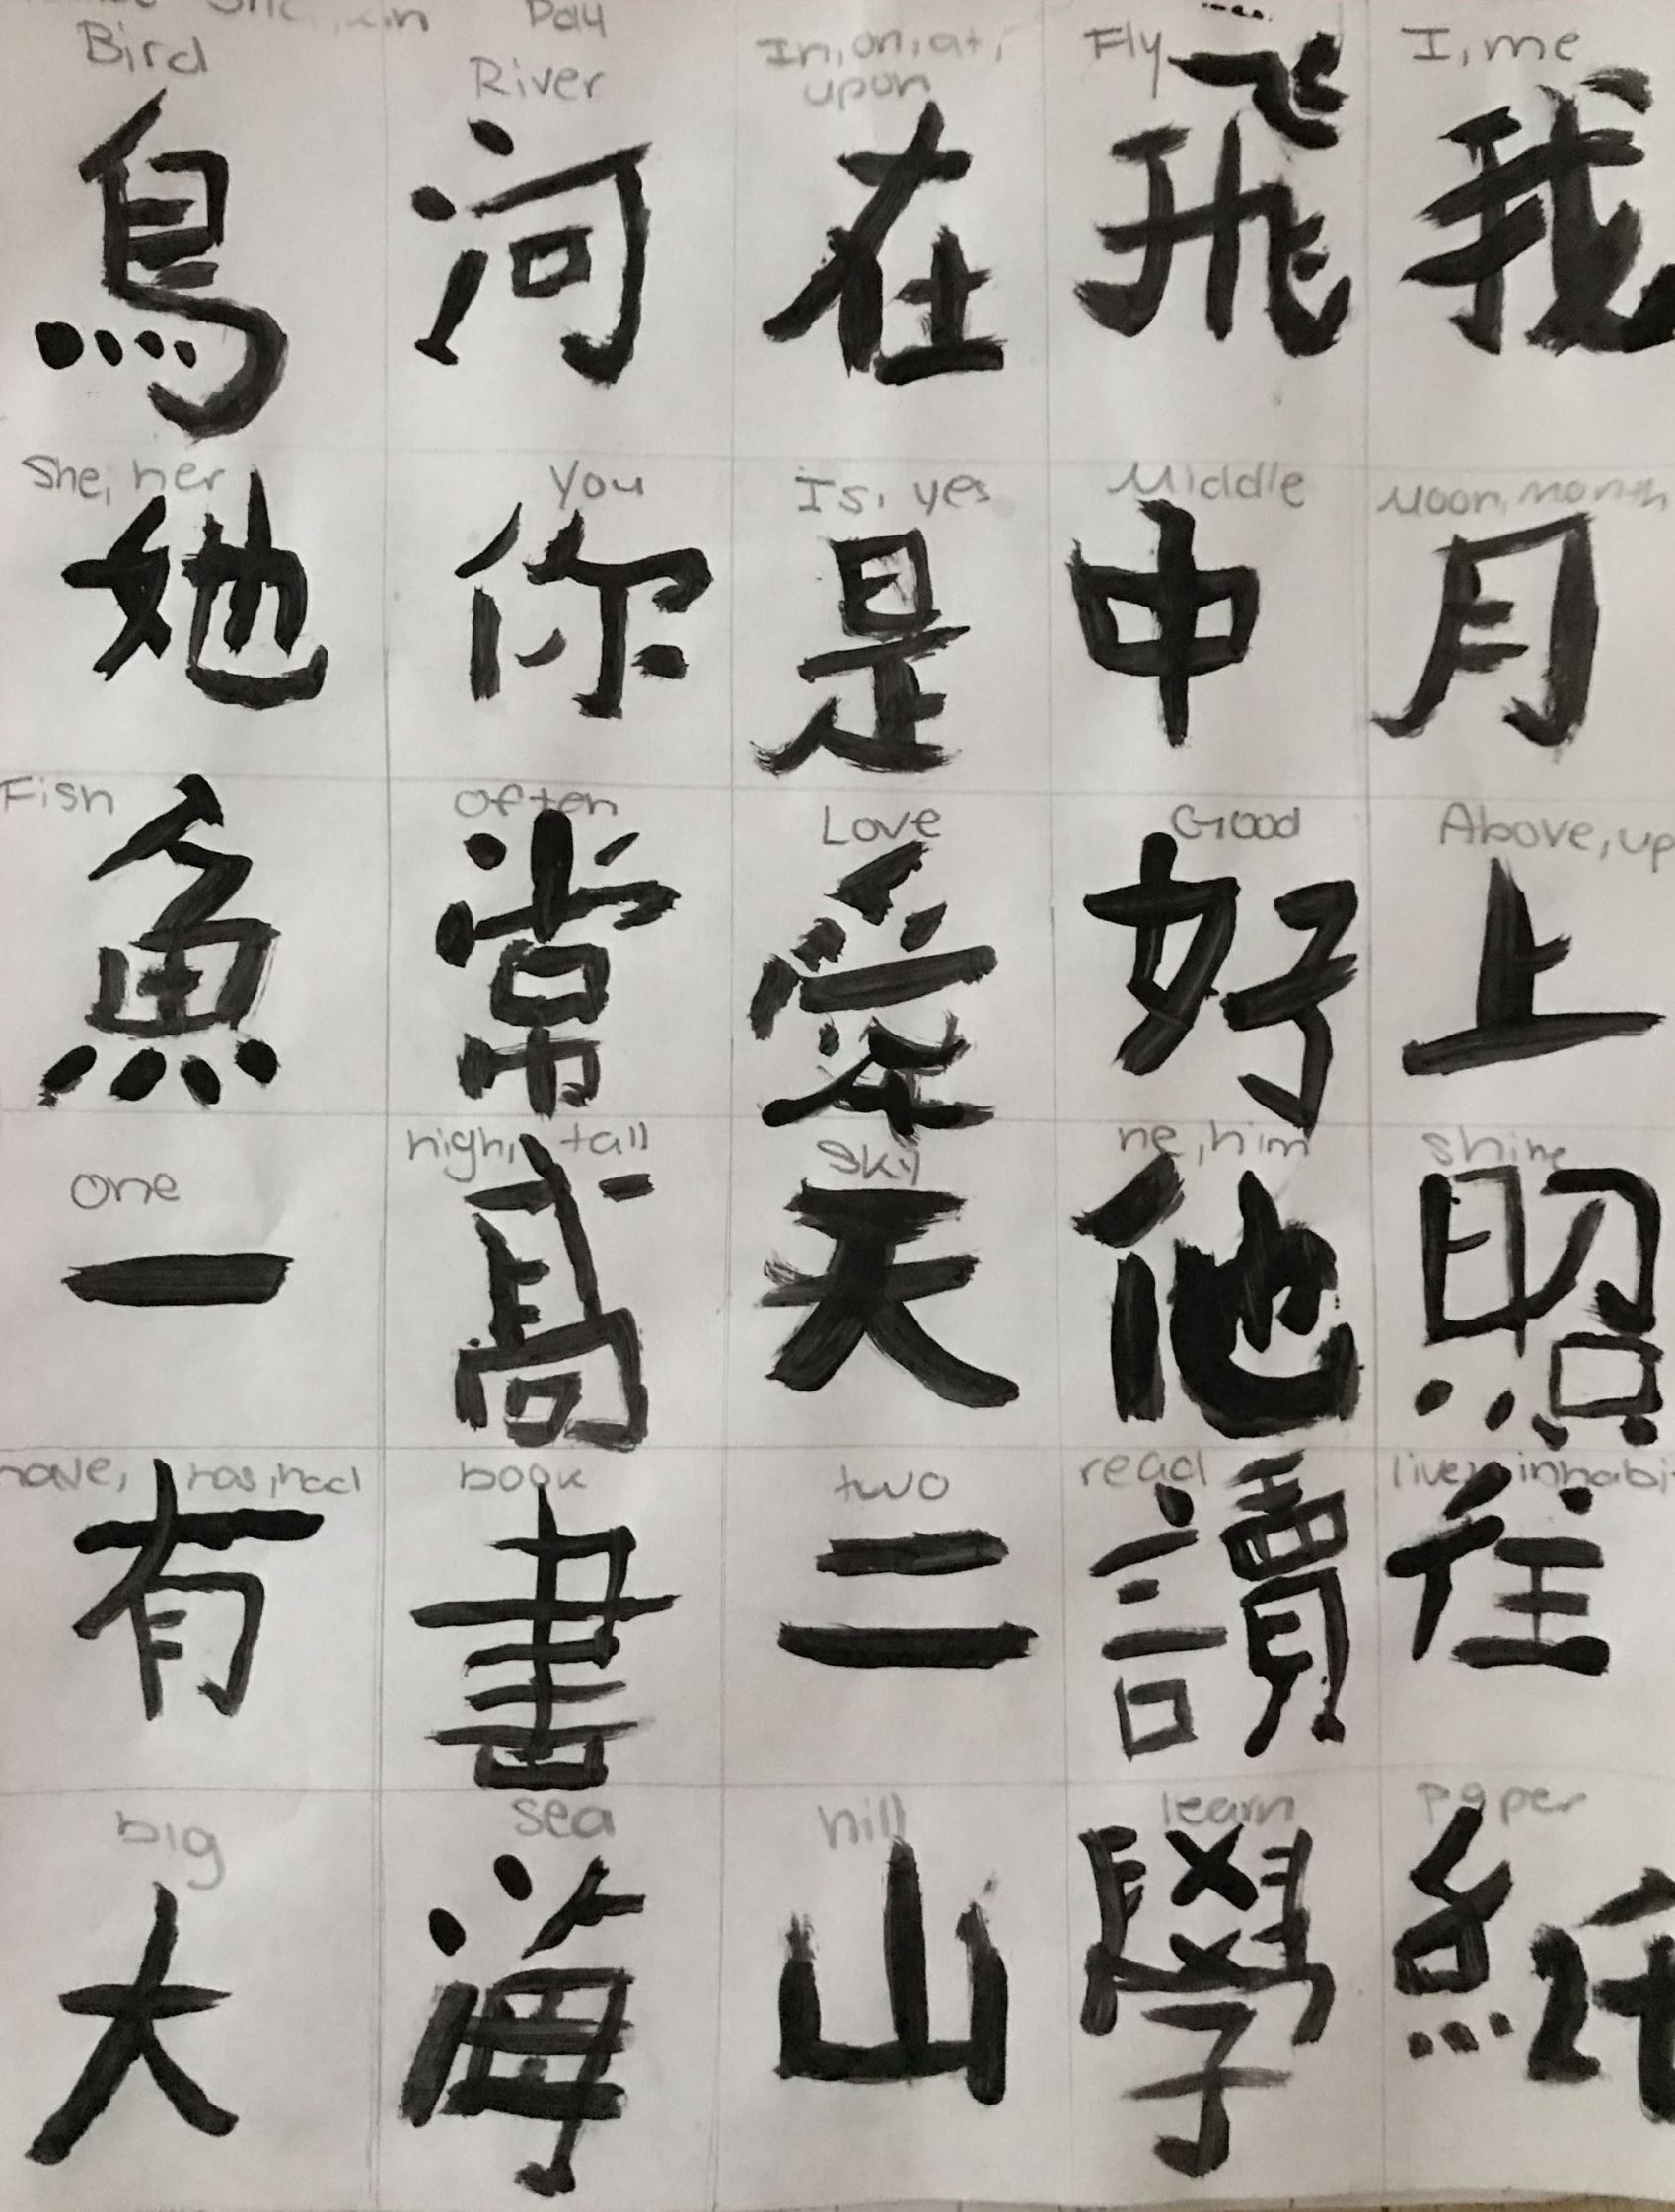 Day
Bird River In, on, at, upon Fly I, me
鳥 河 在 飛 我
She, her You Is, yes Middle Moon, month
她 你 是 中 月
Fish Often Love Good Above, up
魚 常 愛 好 上
one high, tall Sky he, him shine
一 高 天 他 照
have, has, had book two read live, inhabi
有 書 二 讀 住
big sea hill learn paper
大 海 山 學 紙